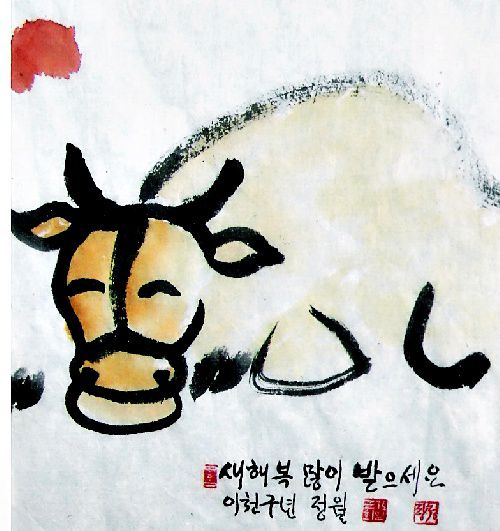 새해복 많이 받으세요
이천구년 정월